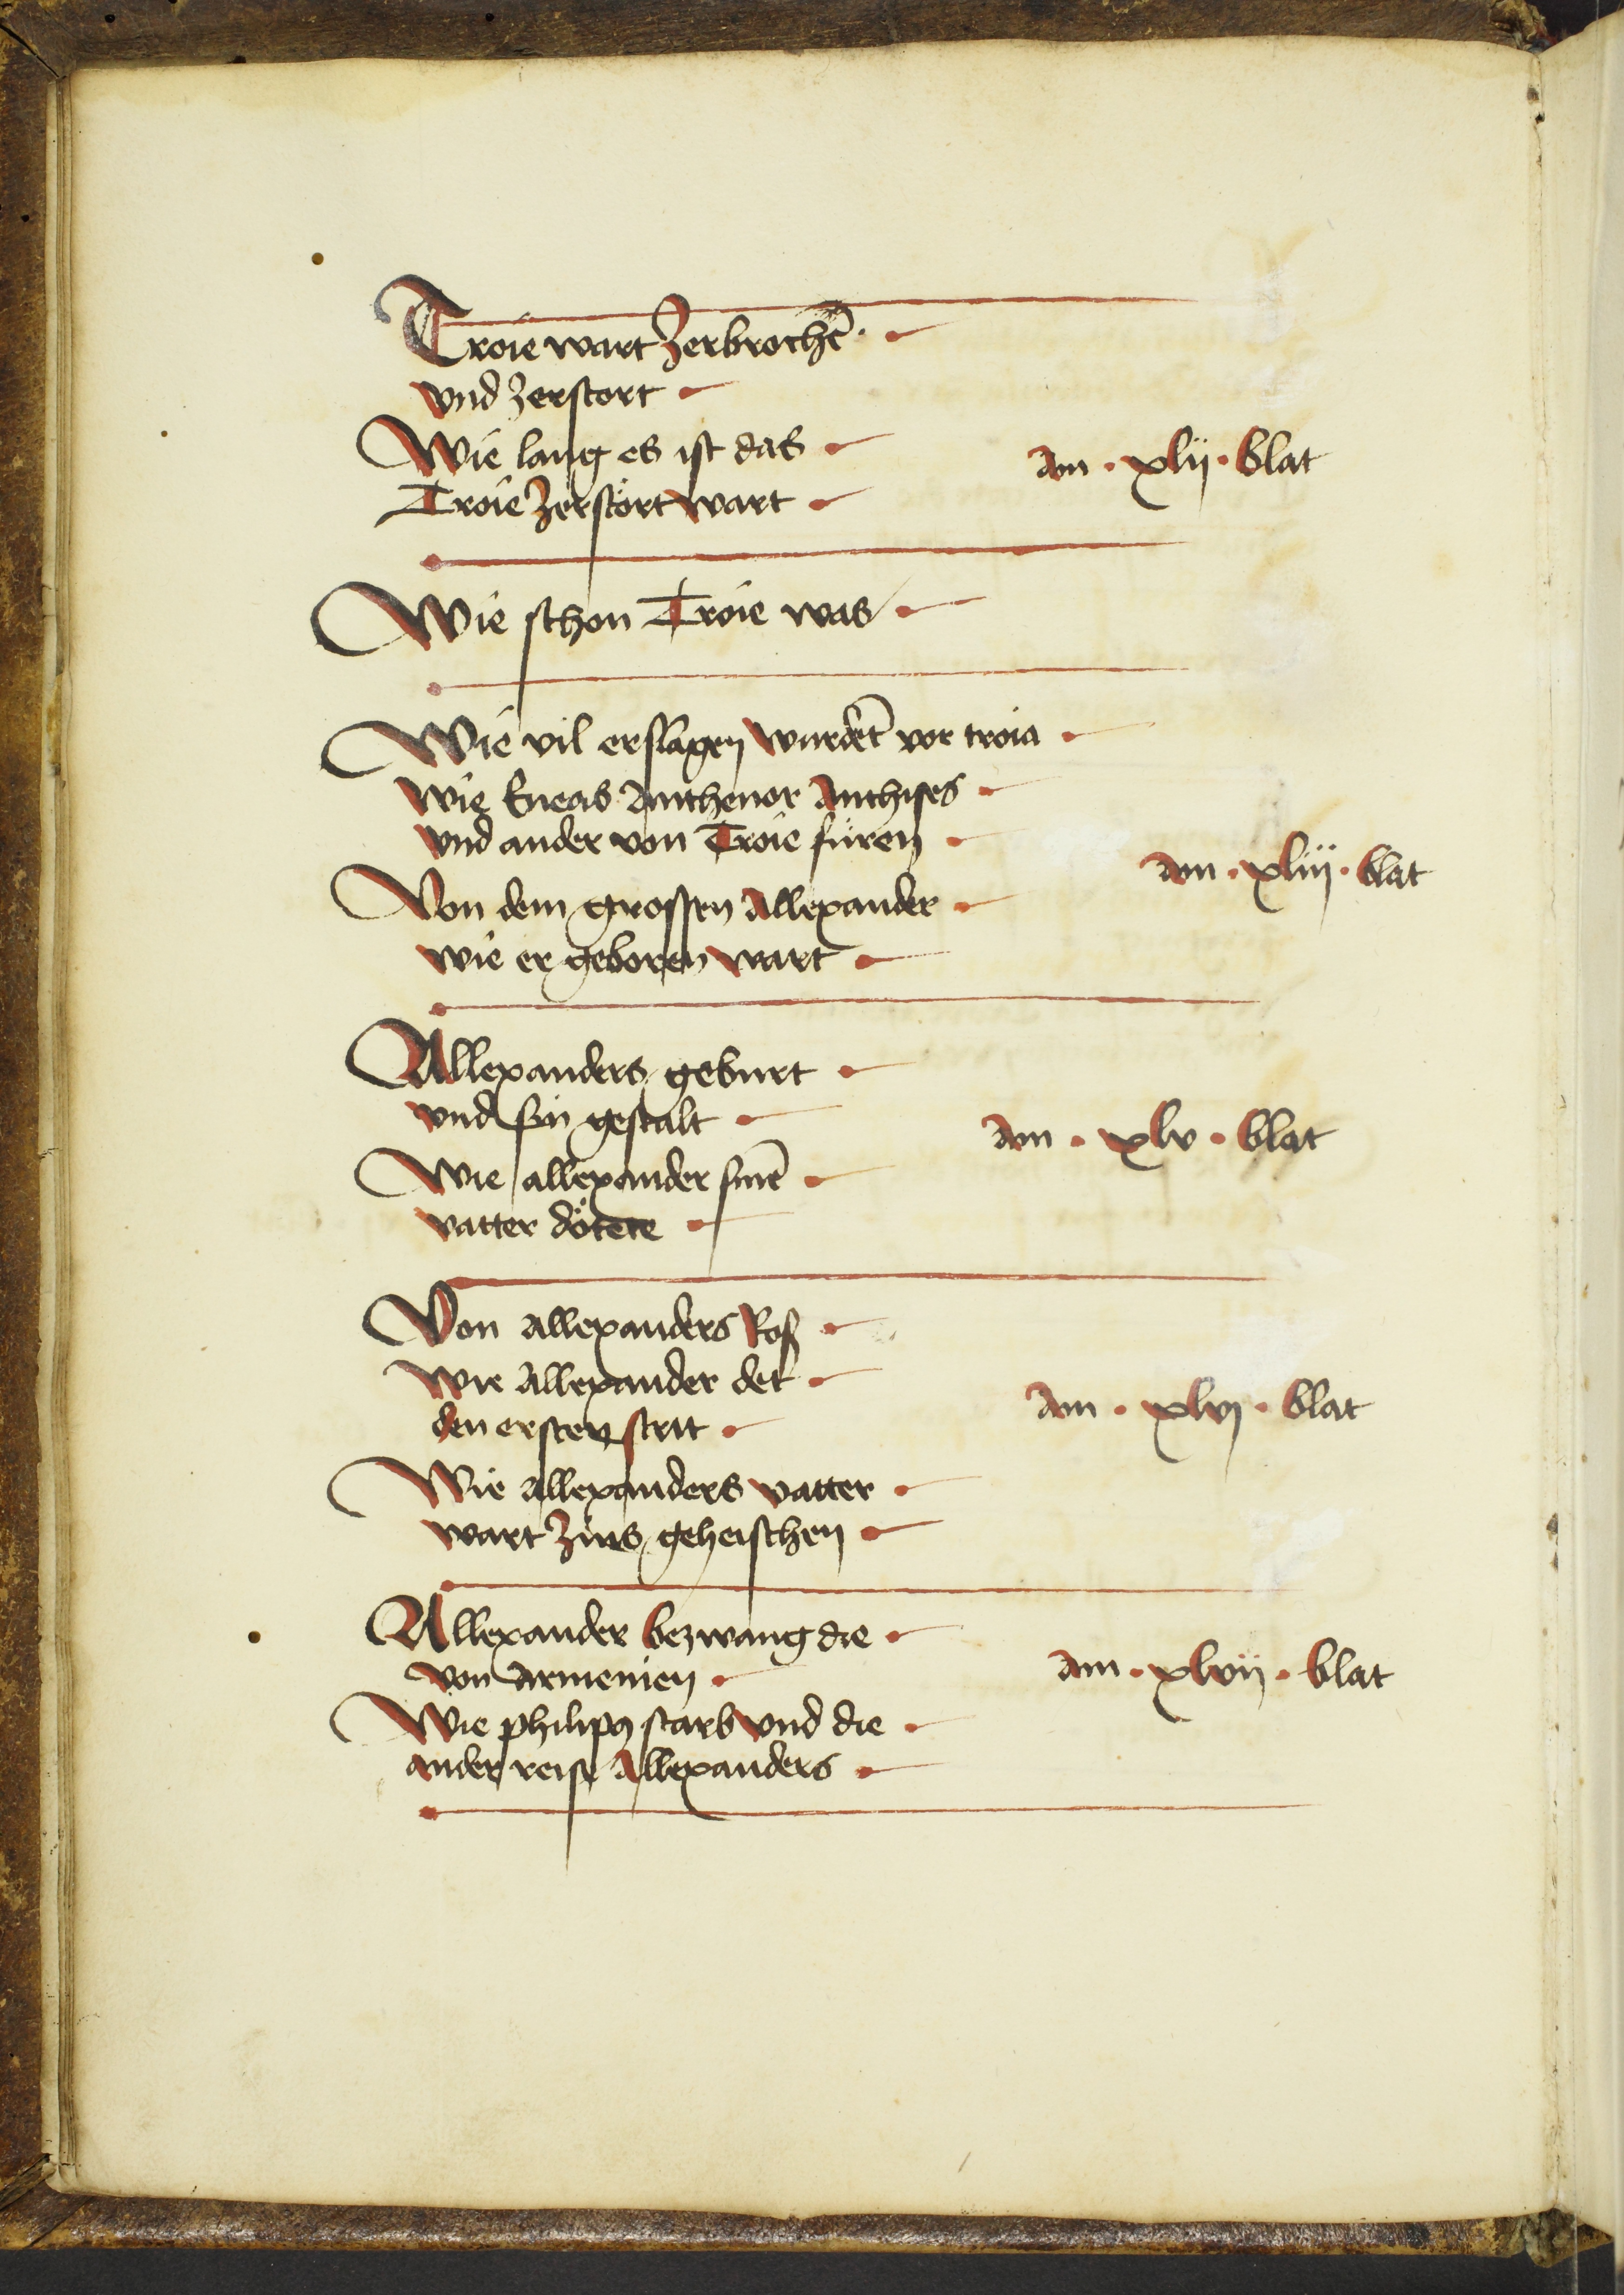 Troie wart Zerbrochē
vnd Zerstort
Wie lang es ist das
am · xlij · blat
Troie Zerstört wart
Wie schon Troie was
Wie vil erslagen wurdēt vor troia
Wie Eneas Anthenor Anthises
vnd ander von Troie füren
am · xliij · blat
Von dem grossen Allexander
wie er geboren wart
Allexanders geburt
vnd sin gestalt
am · xlv · blat
Wie allexander sinē
vatter dötete
Von allexanders Roß
Wie Allexander det
am · xlvj · blat
den ersten strit
Wie Allexanders vatter
wart Zins geheischen
Allexander bezwang die
von Armenien
am · xlvij · blat
Wie philipp starb vnd die
ander reise Allexanders